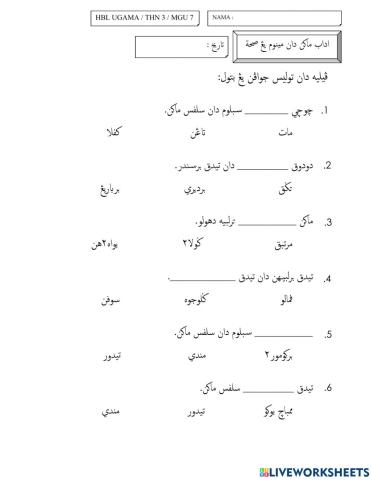 HBL UGAMA / THN 3 / MGU 7 NAMA :
اداب ماكن دان مينوم يڠ صحة تاريخ :
ڤيليه دان توليس جواڤن يڠ بتول:
1. چوچي ________ سبلوم دان سلفس ماكن.
مات تاڠن كڤلا
2. دودوق __________ دان تيدق برسندر.
تݢق برديري برباريڠ
3. ماكن ___________ ترلبيه دهولو.
مرتبق كولا٢ بواه٢هن
4. تيدق برلبيهن دان تيدق ____________.
ڤمالو ݢلوجوه سوڤن
5. ___________ سبلوم دان سلفس ماكن.
بركومور٢ مندي تيدور
6. تيدق __________ سلفس ماكن.
ممباچ بوكو تيدور مندي
LIVEWORKSHEETS